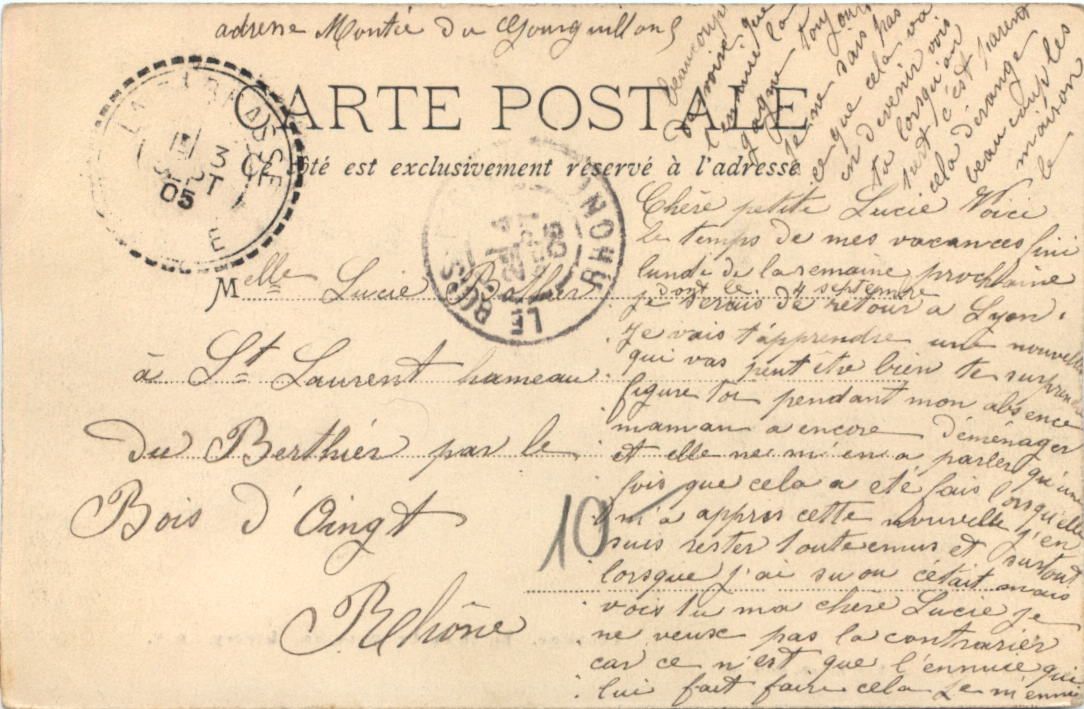 adresse Montée du Gourguillon 5
CARTE POSTALE
Ce côté est exclusivement réservé à l'adresse
3
SEPT
05
LE BOIS
RHONE
05
Melle Lucie
à St Laurent hameau
du Berthier par le
Bois d'Oingt
Rhône
10
Chère petite Lucie Voici
le temps de mes vacances fini
lundi de la semaine prochaine
dont le 4 septembre
je serais de retour a Lyon.
Je vais t'apprendre une nouvelle
qui vas peut être bien te surprendre
figure toi pendant mon absence
maman a encore déménager
et elle ne m'en a parler qu'une
fois que cela a eté fais lorsqu'elle
m'a appris cette nouvelle j'en
suis rester toute emus et surtout
lorsque j'ai su ou c'était mais
vois tu ma chère Lucie je
ne veux pas la contrarier
car ce n'est que l'ennuie qui
lui fait faire cela je m'ennui
beaucoup
que
l'ennuie la
gagne toujours
je ne sais pas
ce que cela va
en devenir vois
tu lorsqu'on
sert c'est parent
cela dérange
beaucoup les
maison